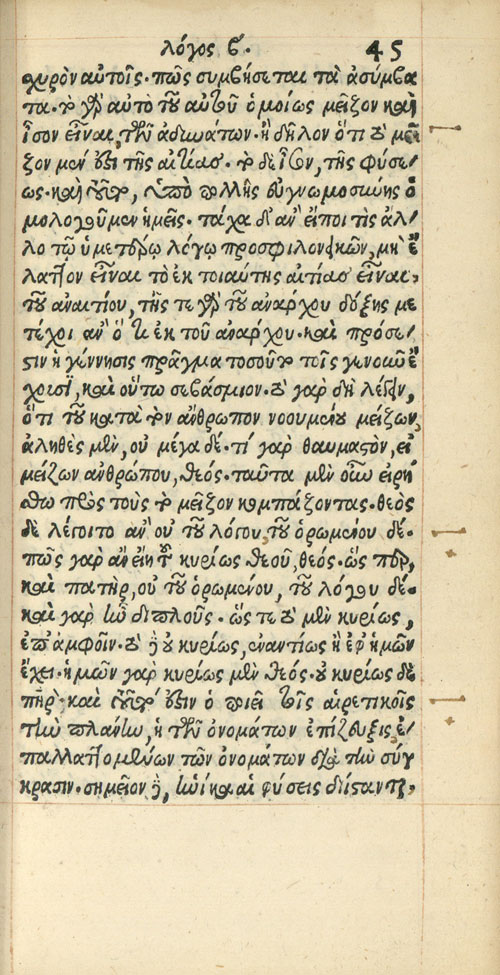 λόγος β. 45
χυρὸν αὐτοῖς. πῶς συμβήσεται τὰ ἀσύμβα
τα. τὸ γὰρ αὐτὸ τοῦ αὐτοῦ ὁμοίως μεῖζον καὶ
ἴσον εἶναι, τῶν ἀδυνάτων. ἢ δῆλον ὅτι τὸ μεῖ
ζον μέν ἐστι τῆς αἰτίας. τὸ δὲ ἴσον, τῆς φύσε/
ως. καὶ τοῦτο, ὑπὸ πολλῆς εὐγνωμοσύνης ὁ
μολογοῦμεν ἡμεῖς. τάχα δ' ἂν εἴποι τὶς ἄλ/
λο τῷ ἡμετέρῳ λόγῳ προσφιλονεικῶν, μὴ ἔ
λαττον εἶναι τὸ ἐκ τοιαύτης αἰτίας εἶναι,
τοῦ ἀναιτίου, τῆς τε γὰρ τοῦ ἀνάρχου δόξης με
τέχοι ἂν ὅτι ἐκ τοῦ ἀνάρχου. καὶ πρόσε/
στιν ἡ γέννησις πρᾶγμα τοσοῦτο τοῖς γε νοῦν ἔ
χουσι, καὶ οὕτω σεβάσμιον. τὸ γὰρ δὴ λέγειν,
ὅτι τοῦ κατὰ τὸν ἄνθρωπον νοουμένου μείζων,
ἀληθὲς μὲν, οὐ μέγα δέ. τί γὰρ θαυμαστὸν, εἰ
μείζων ἀνθρώπου, θεός. ταῦτα μὲν οὖν εἰρή
σθω πρὸς τοὺς τὸ μεῖζον κομπάζοντας. θεὸς
δὲ λέγοιτο ἂν οὐ τοῦ λόγου, τοῦ ὁρωμένου δέ.
πῶς γὰρ ἂν εἴη τοῦ κυρίως θεοῦ, θεός. ὥσπερ,
καὶ πατὴρ, οὐ τοῦ ὁρωμένου, τοῦ λόγου δέ.
καὶ γὰρ ἦν διπλοῦς. ὥστε τὸ μὲν κυρίως,
ἐπ' ἀμφοῖν. τὸ δὲ οὐ κυρίως, ἐναντίως ἢ ἐφ' ἡμῶν
ἔχει. ἡμῶν γὰρ κυρίως μὲν θεός. οὐ κυρίως δὲ
πατήρ. καὶ τοῦτό ἐστιν ὃ ποιεῖ τοῖς αἱρετικοῖς
τὴν πλάνην, ἡ τῶν ὀνομάτων ἐπίζευξις, ἐ/
παλλαττομένων τῶν ὀνομάτων διὰ τὴν σύγ
κρασιν. σημεῖον δὲ, ἡνίκα αἱ φύσεις διίστανται,